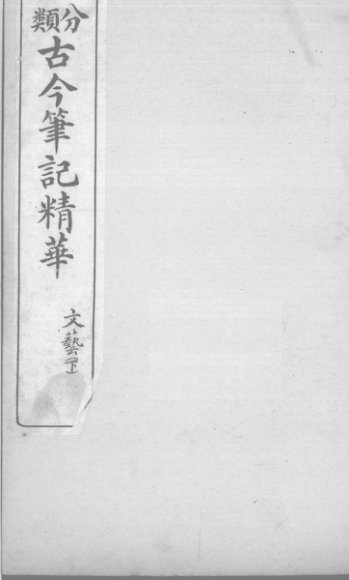 分類古今筆記精華
文藝(下)